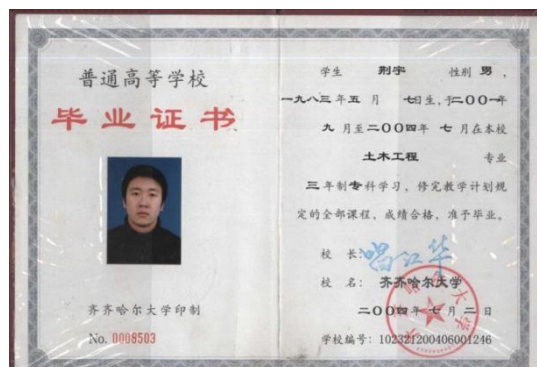 普通高等学校
毕业证书
齐齐哈尔大学印制
No. 0008503
学生 荆宇 性别 男，
一九八三年五 月 七日生，于二〇〇一年
九 月至二〇〇四年 七 月在本校
土木工程 专业
三 年制专科学习，修完教学计划规
定的全部课程，成绩合格，准予毕业。
校 长：
校 名： 齐齐哈尔大学
二〇〇四年 七 月 二 日
学校编号：102321200406001246